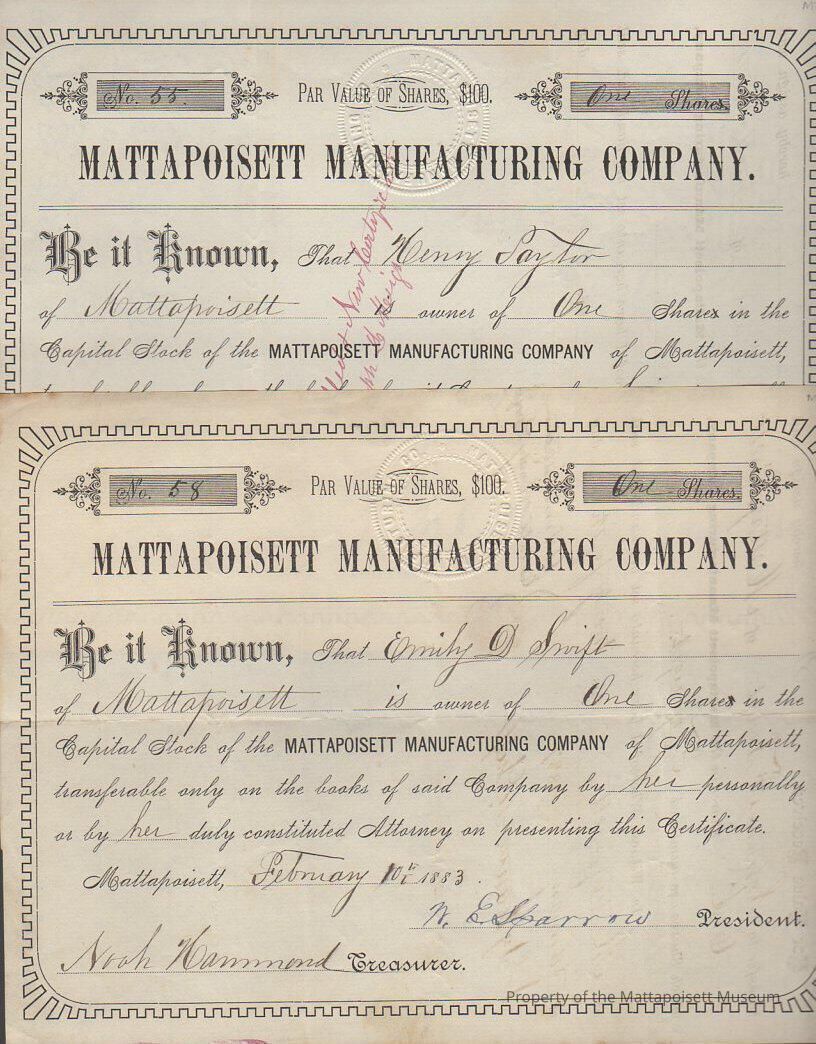 No. 55.
PAR VALUE OF SHARES, $100.
One Shares.
MATTAPOISETT MANUFACTURING COMPANY.
Be it Known, That Henry Taylor
of Mattapoisett is owner of One Shares in the
Capital Stock of the MATTAPOISETT MANUFACTURING COMPANY of Mattapoisett,
New Certificate
No. 58
PAR VALUE OF SHARES, $100.
One Shares.
MATTAPOISETT MANUFACTURING COMPANY.
Be it Known, That Emily D Swift
of Mattapoisett is owner of One Shares in the
Capital Stock of the MATTAPOISETT MANUFACTURING COMPANY of Mattapoisett,
transferable only on the books of said Company by her personally
or by her duly constituted Attorney on presenting this Certificate.
Mattapoisett, February 10th 1883.
W. E. Sparrow President.
Noah Hammond Treasurer.
Property of the Mattapoisett Museum